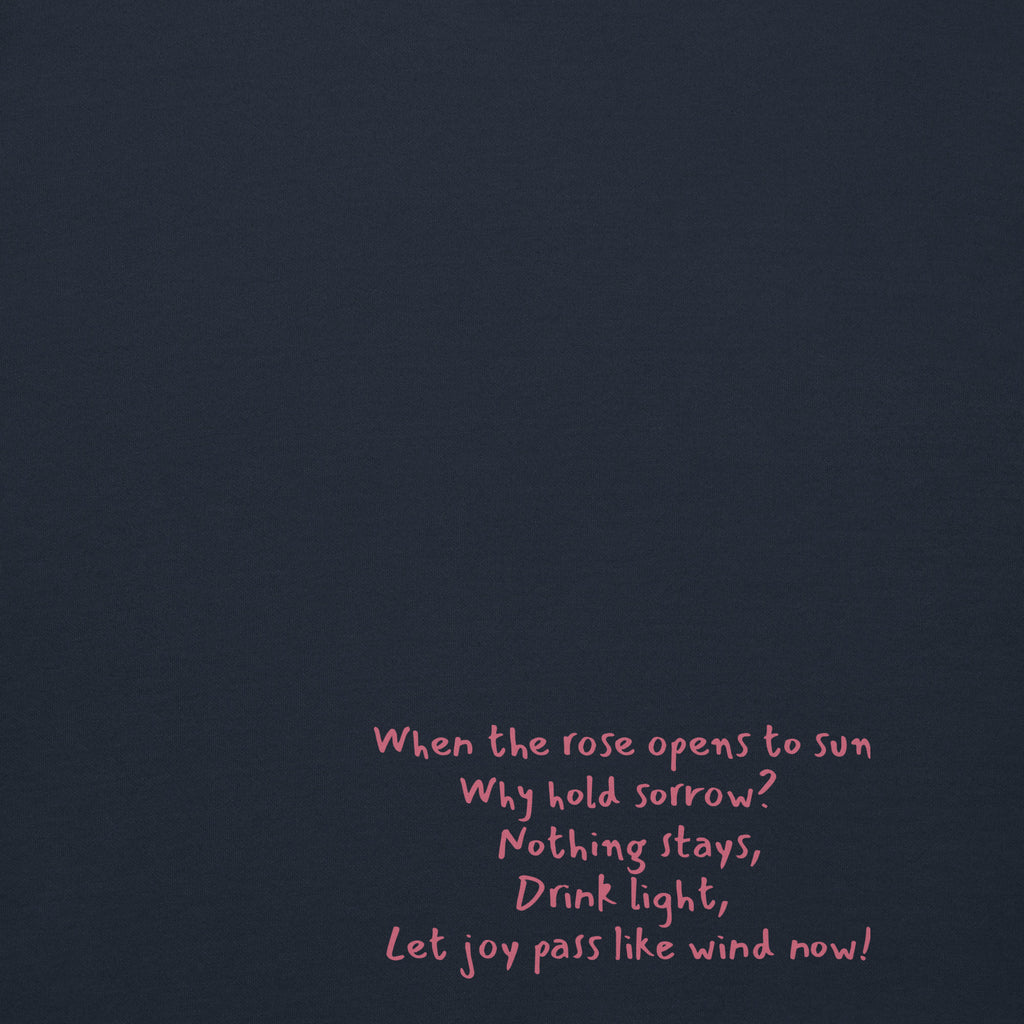 When the rose opens to sun
Why hold sorrow?
Nothing stays,
Drink light,
Let joy pass like wind now!